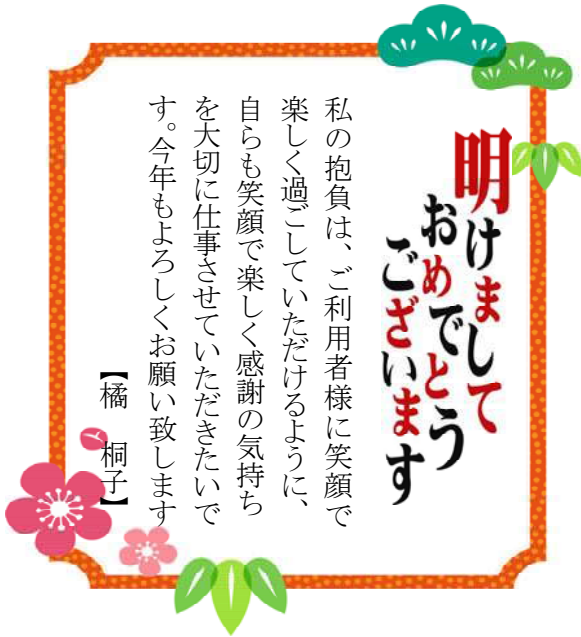 明けまして
おめでとう
ございます
私の抱負は、ご利用者様に笑顔で
楽しく過ごしていただけるように、
自らも笑顔で楽しく感謝の気持ち
を大切に仕事させていただきたいで
す。今年もよろしくお願い致します
【橘　桐子】